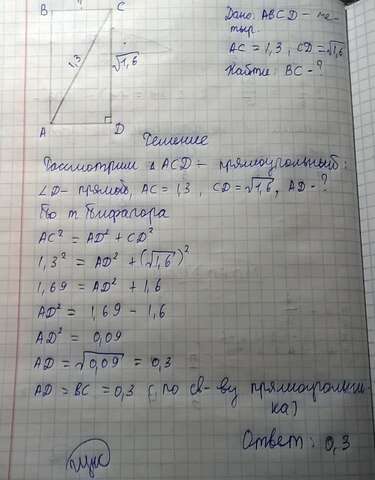 B ? C
Дано: ABCD – че-
тыр.
AC = 1,3, CD = √1,6
Найти: BC - ?
1,3
√1,6
A D
Решение
Рассмотрим Δ ACD – прямоугольный:
∠D – прямой, AC = 1,3, CD = √1,6, AD - ?
По т. Пифагора
AC² = AD² + CD²
1,3² = AD² + (√1,6)²
1,69 = AD² + 1,6
AD² = 1,69 - 1,6
AD² = 0,09
AD = √0,09 = 0,3
AD = BC = 0,3 (по св-ву прямоугольни-
ка)
Ответ: 0,3